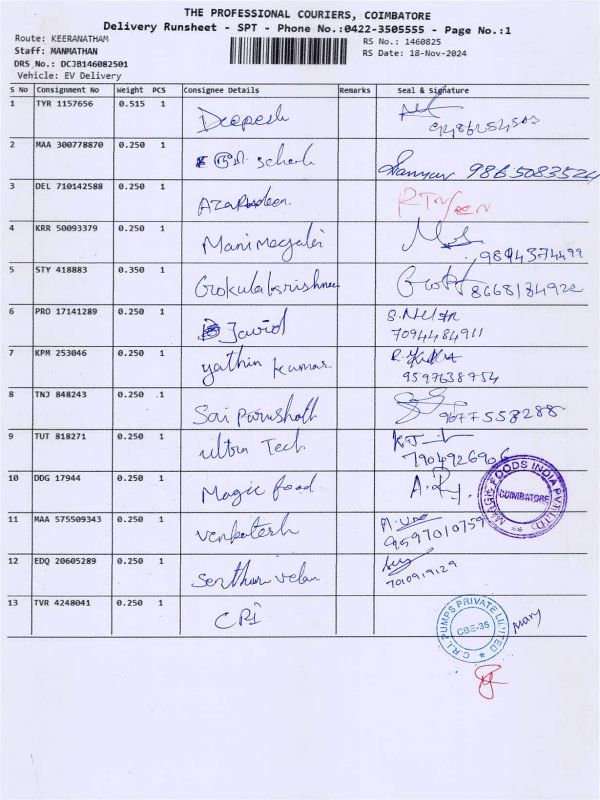 THE PROFESSIONAL COURIERS, COIMBATORE
Delivery Runsheet - SPT - Phone No.:0422-3505555 - Page No.:1
Route: KEERANATHAM
RS No.: 1460825
Staff: MANMATHAN
RS Date: 18-Nov-2024
DRS No.: DCJB146082501
Vehicle: EV Delivery
S No Consignment No Weight PCS Consignee Details Remarks Seal & Signature
1 TYR 1157656 0.515 1 Deepesh
2 MAA 300778870 0.250 1 School 9865083524
3 DEL 710142588 0.250 1 Azarudeen RTN
4 KRR 50093379 0.250 1 Manimegalai 9894374499
5 STY 418883 0.350 1 Gokulakrishnan 8668134922
6 PRO 17141289 0.250 1 Javid
7094484911
7 KPM 253046 0.250 1 yathin kumar
9597638754
8 TNJ 848243 0.250 .1 Sai Purushoth 9677558288
9 TUT 818271 0.250 1 ultra Tech
7904926906
10 DDG 17944 0.250 1 Magic food
MAGIC FOODS INDIA PVT LTD
COIMBATORE
11 MAA 575509343 0.250 1 venkatesh
9597010759
12 EDQ 20605289 0.250 1 Senthur velan
7010919129
13 TVR 4248041 0.250 1 CRI
C.R.I. PUMPS PRIVATE LIMITED
CBE-35
Mary